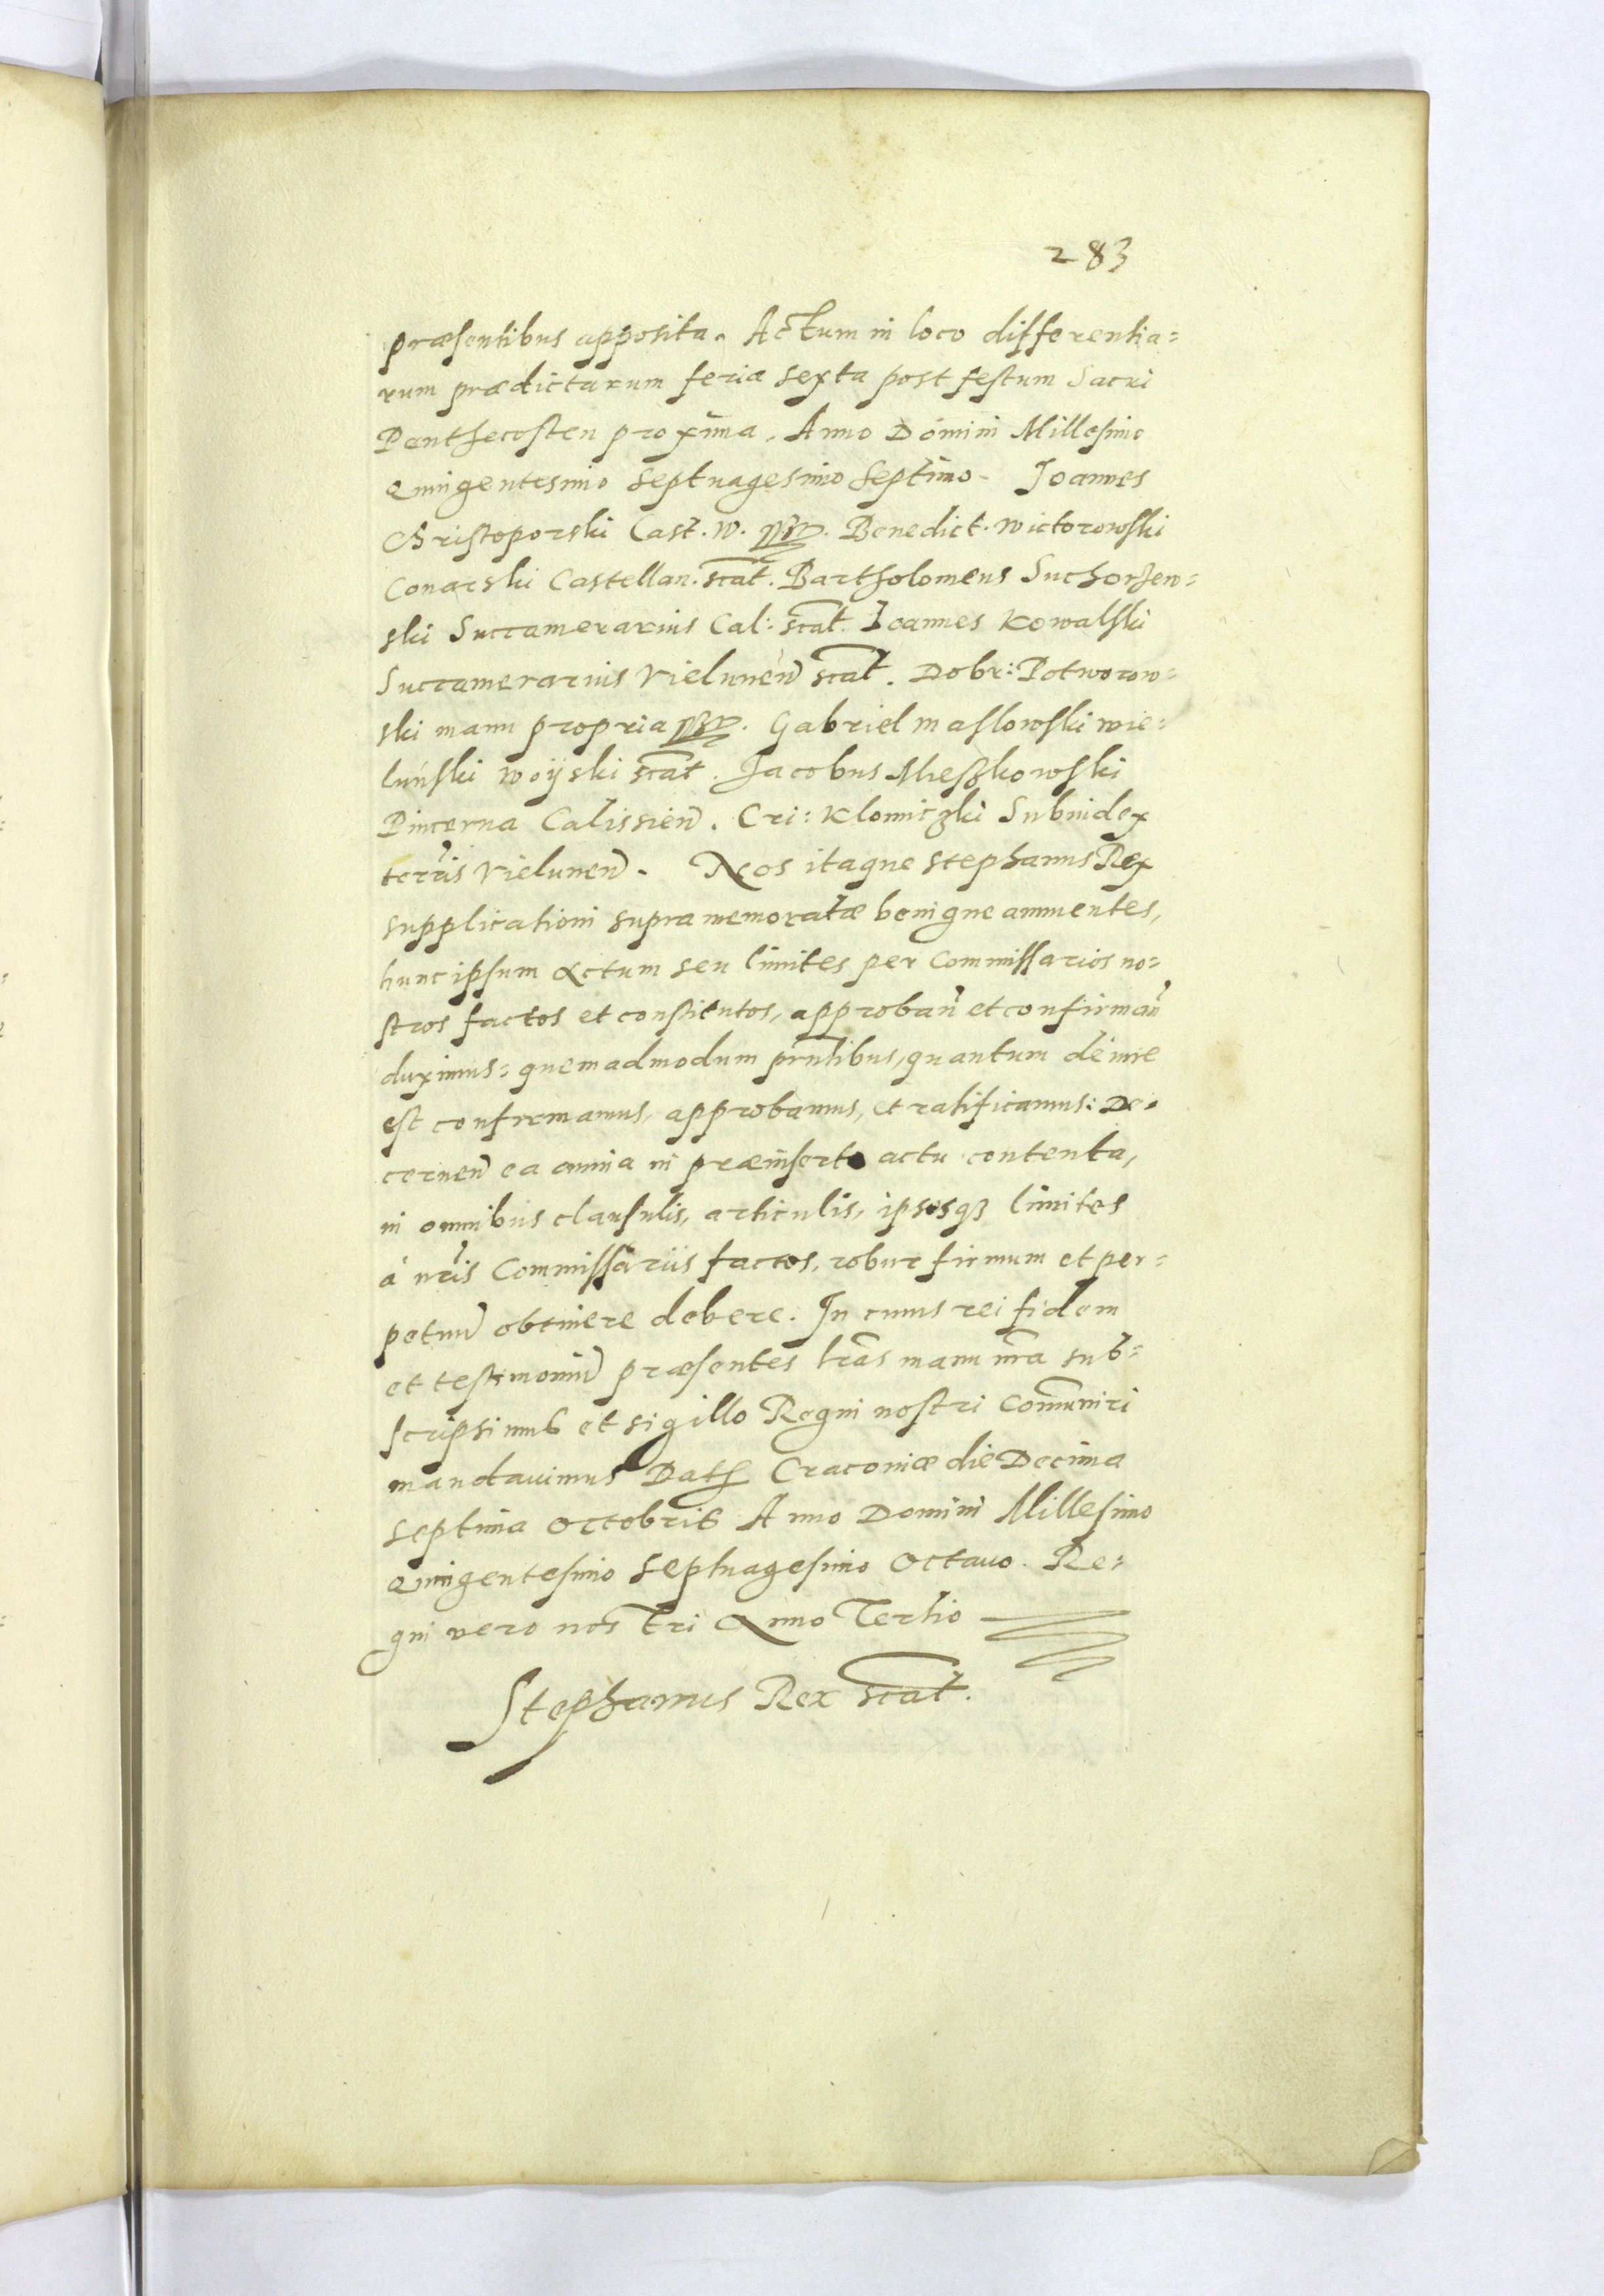 283
præsentibus apposita. Actum in loco differentia=
rum prædictarum feria sexta post festum Sacri
Penthecosten proxima. Anno Domini Millesimo
Quingentesimo Septuagesimo Septimo. Joannes
Christoporski Cast. W. Benedict. Wictorowski
Conarski Castellan. scãt. Bartholomeus Suchorzew=
ski Succamerarius Cal: scãt. Ioannes Kowalski
Succamerarius Vielunen̄ scãt. Dobr: Potworow=
ski manu propria. Gabriel Maslowski wie=
luński woÿski scãt. Jacobus Mieszkowski
Pincerna Calissien̄. Cri: Klomiczki Subiudex
terris Vielunen̄. Nos itaque Stephanus Rex
supplicationi supramemoratæ benigne annuentes,
hunc ipsum Actum seu limites per Commissarios no=
stros factos et constitutos, approban̄ et confirman̄
duximus: quemadmodum pr̃ntibus, quantum de iure
est confirmamus, approbamus, et ratificamus: De=
cernen̄ ea omnia in præinserto actu contenta,
in omnibus clausulis, articulis, ipsosq₃ limites
á nr̃is Commissariis factos, robur firmum et per=
petuū obtinere debere. In cuius rei fidem
et testimoniū præsentes lr̃as manu nr̃a sub=
scripsimus et sigillo Regni nostri Com̃uniri
mandavimus Dat Cracoviæ die Decima
septima Octobris Anno Domini Millesimo
Quingentesimo Septuagesimo Octavo. Re=
gni vero nostri Anno Tertio
Stephanus Rex scãt.